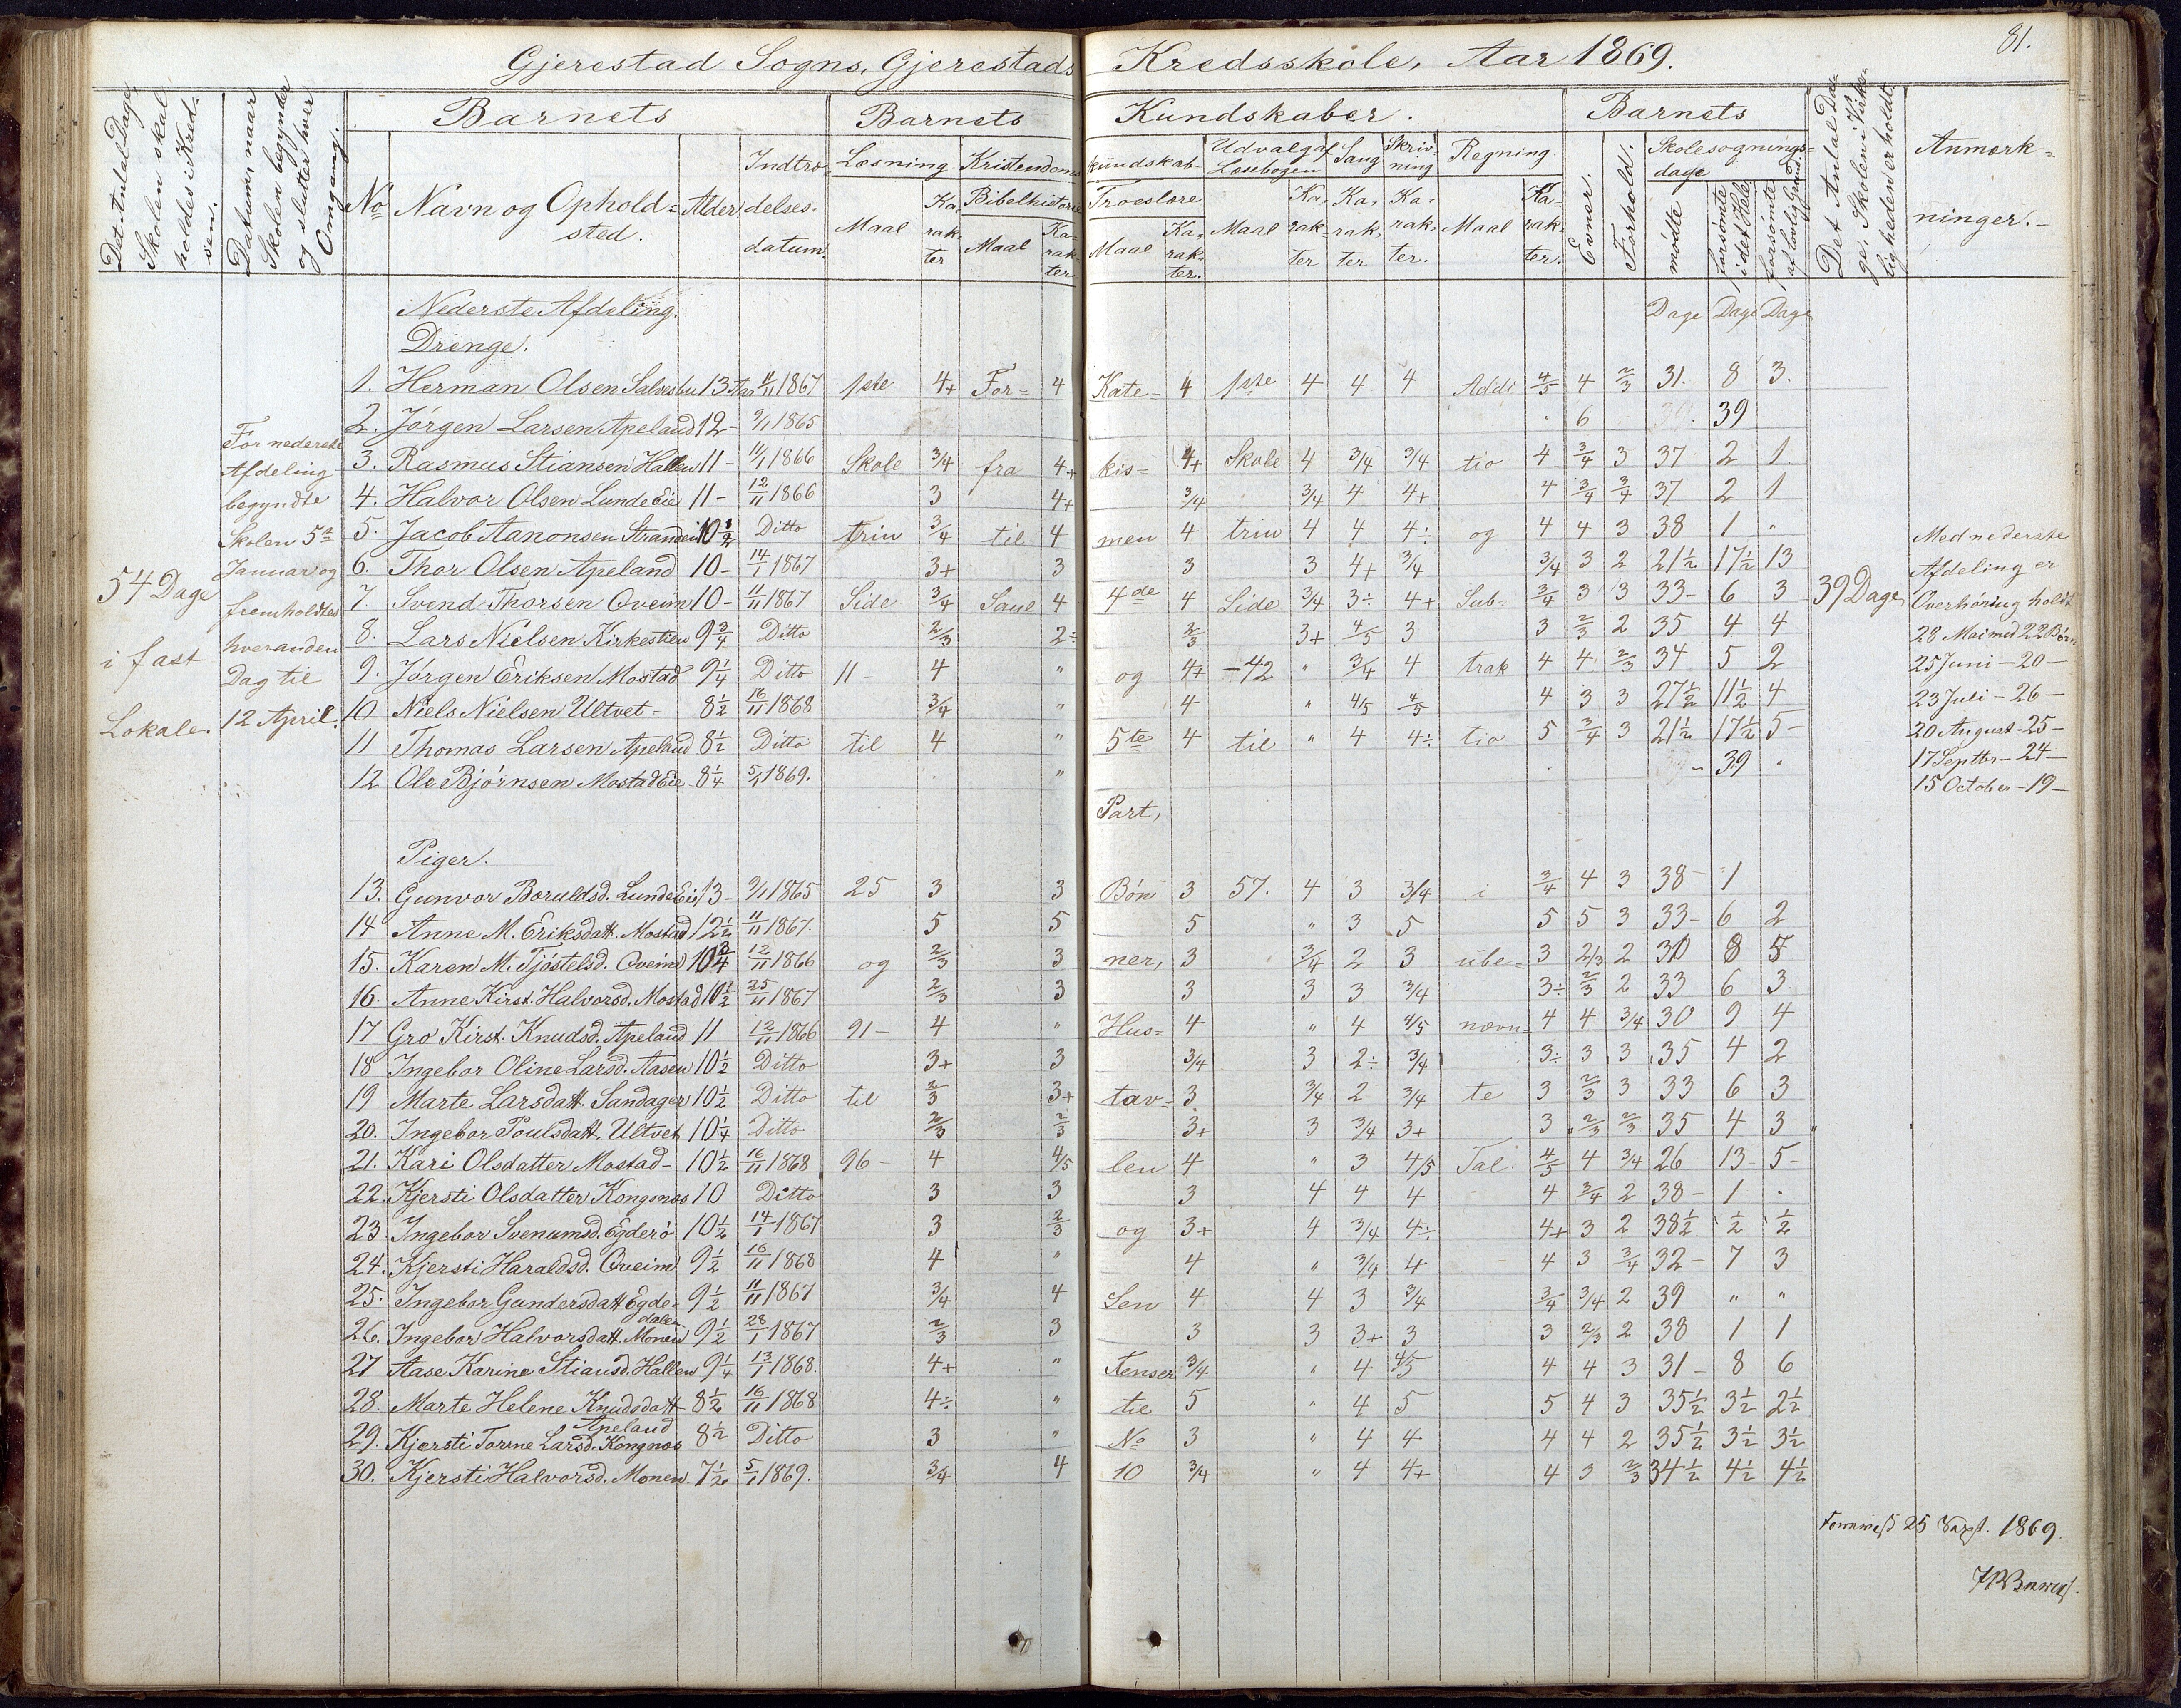 81.
Gjerestad Sogns, Gjerestads Kredsskole, Aar 1869.
Det Antal Dage Skolen skal holdes i Kredsen.
Datum, naar Skolen begynder og slutter hver Omgang.
Barnets
No
Navn og Opholdsted.
Alder
Indtrædelsesdatum.
Barnets Kundskaber.
Læsning
Maal
Karakter
Kristendomskundskab
Bibelhistorie
Maal
Karakter
Troeslære
Maal
Karakter.
Udvalg af Læsebogen
Maal
Karakter
Sang
Karakter
Skrivning
Karakter.
Regning
Maal
Karakter.
Barnets
Evner.
Forhold.
Skolesøgningsdage
mødte
forsømte i det Hele
forsømte af lovlig Grund.
Det Antal Dage, Skolen i Virkeligheden er holdt.
Anmærkninger.
Nederste Afdeling.
Dage Dage Dage
Drenge.
1. Herman Olsen Salvesbu 13 Aar 11/11 1867 1ste 4+ For- 4 Kate- 4 1ste 4 4 4 Addi 4/5 4 2/3 31. 8 3.
2. Jørgen Larsen Apeland 12 - 9/1 1865 6 39
3. Rasmus Stiansen Hallen 11 - 11/1 1866 Skole 3/4 fra 4+ kis- 4+ Skole 4 3/4 3/4 tio 4 3/4 3 37 2 1.
4. Halvor Olsen Lunde Eie 11 - 12/11 1866 3 4+ 3/4 3/4 4 4+ 4 3/4 3/4 37 2 1
5. Jacob Aanonsen 10 1/2 Ditto trin 3/4 til 4 men 4 trin 4 4 4÷ og 4 4 3 38 1 "
6. Thor Olsen Apeland 10 - 14/1 1867 3+ 3 3 3 4+ 3/4 3/4 3 2 21 1/2 17 1/2 13
7. Svend Thorsen Qveim 10 - 11/11 1867 Side 3/4 Saul 4 4de 4 Side 3/4 3÷ 4+ Sub- 3/4 3 3 33 - 6 3
8. Lars Nielsen Kirkestien 9 3/4 Ditto 2/3 2÷ 2/3 3+ 4/5 3 3 2/3 2 35 4 4
9. Jørgen Eriksen Mostad 9 1/4 Ditto 11 - 4 " og 4+ -42 " 3/4 4 trak 4 4 2/3 34 5 2
10 Niels Nielsen Ultvet - 8 1/2 16/11 1868 3/4 " 4 " 4/5 4/5 4 3 3 27 1/2 11 1/2 4
11 Thomas Larsen Apeland 8 1/2 Ditto til 4 " 5te 4 til " 4 4÷ tio 5 3/4 3 21 1/2 17 1/2 5 -
12 Ole Bjørnsen Mostad Eie 8 1/4 5/1 1869. " 39 "
Part,
Piger.
13. Gunvor Boruldsd. Lunde Eie 13 - 9/1 1865 25 3 3 Bøn 3 57. 4 3 3/4 i 3/4 4 3 38 - 1
14 Anne M. Eriksdatt. Mostad 12 1/2 11/11 1867. 5 5 5 " 3 5 5 5 3 33 - 6 2
15. Karen M. Tjøstelsd. Qveim 10 3/4 12/11 1866 og 2/3 3 ner, 3 3/4 2 3 ube- 3 2/3 2 30 8 5
16. Anne Kirst. Halvorsd. Mostad 10 1/2 25/11 1867 2/3 3 3 3 3 3/4 3÷ 2/3 2 33 6 3
17 Gro Kirst. Knudsd. Apeland 11 12/11 1866 91 - 4 " Hus- 4 " 4 4/5 nævn- 4 4 3/4 30 9 4
18 Ingebor Oline Larsd. Aasen 10 1/2 Ditto 3+ 3 3/4 3 2÷ 3/4 3÷ 3 3 35 4 2
19 Marte Larsdatt. Sandager 10 1/2 Ditto til 2/3 3+ tav- 3 3/4 2 3/4 te 3 2/3 3 33 6 3
20. Ingebor Poulsdatt. Ultvet 10 1/4 Ditto 2/3 2/3 3+ 3 3/4 3+ 3 2/3 2/3 35 4 3
21. Kari Olsdatter Mostad - 10 1/2 16/11 1868 96 - 4 4/5 len 4 " 3 4/5 Tal. 4/5 4 3/4 26 13 - 5 -
22. Kjersti Olsdatter Kongsnæs 10 Ditto 3 3 3 4 4 4 4 3/4 2 38 - 1 "
23 Ingebor Svenumsd. Egderø 10 1/2 14/1 1867 3 2/3 og 3+ 4 3/4 4÷ 4+ 3 2 38 1/2 1/2 1/2
24. Kjersti Haraldsd. Qveim 9 1/2 16/11 1868 4 " 4 " 3/4 4 4 3 3/4 32 - 7 3
25. Ingebor Gundersdatt. Egdedalen 9 1/2 11/11 1867 3/4 4 Sen 4 4 3 3/4 3/4 3/4 2 39 " "
26. Ingebor Halvorsdatt. Monen 9 1/2 28/1 1867 2/3 3 3 3 3+ 3 3 2/3 2 38 1 1
27 Aase Karine Stiansd. Hallen 9 1/4 13/1 1868. 4+ " tenser 3/4 " 4 4/5 4 4 3 31 - 8 6
28. Marte Helene Knudsdatt Apeland 8 1/2 16/11 1868 4÷ " til 5 " 4 5 5 4 3 35 1/2 3 1/2 2 1/2
29. Kjersti Tomine Larsd. Kongnæs 8 1/2 Ditto 3 " No 3 " 4 4 4 4 2 35 1/2 3 1/2 3 1/2
30. Kjersti Halvorsd. Monen. 7 1/2 5/1 1869. 3/4 4 10 3/4 " 4 4+ 4 3 2/3 34 1/2 4 1/2 4 1/2
54 Dage
i fast
Lokale.
For nederste
Afdeling
begyndte
Skolen 5te
Januar og
fremholdtes
hveranden
Dag til
12 April.
39 Dage
Med nederste
Afdeling er
Overhøring holdt
28 Mai med 22 Børn
25 Juni - 20 -
23 Juli - 26 -
20 August - 25 -
17 Septbr - 24 -
15 October - 19 -
25 Sept. 1869.